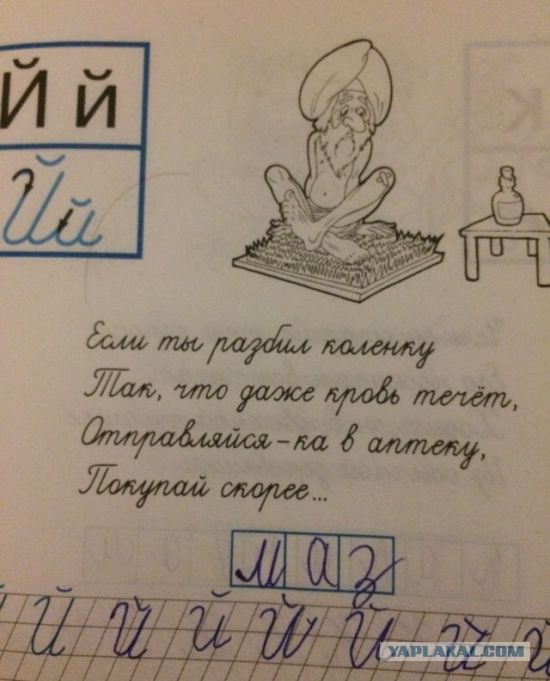 Й й
Й й
Если ты разбил коленку
Так, что даже кровь течёт,
Отправляйся-ка в аптеку,
Покупай скорее...
маз
Й Й Й Й Й Й Й Й
YAPLAKAL.COM